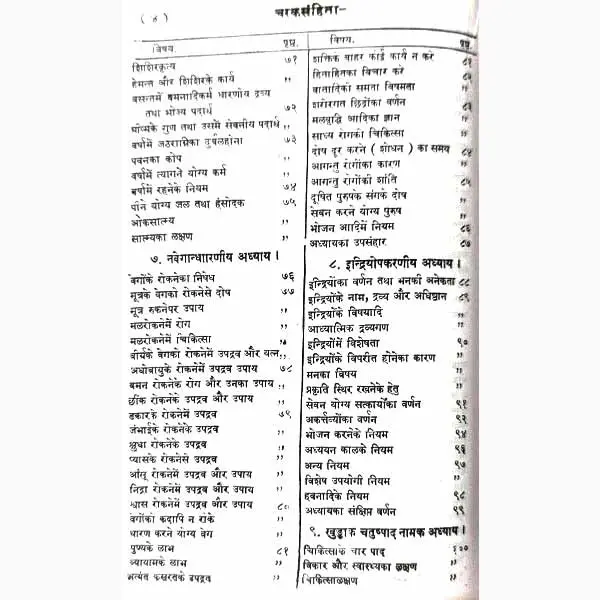 ( ४ )
चरकसंहिता-
विषय. पृष्ठ.
शिशिरकृत्य ७१
हेमन्त और शिशिरके कार्य ,,
वसन्तमें वमनादिकर्म धारणीय द्रव्य
तथा भोज्य पदार्थ ७२
ग्रीष्मके गुण तथा उसमें सेवनीय पदार्थ ,,
वर्षामें जठराग्निका दुर्बलहोना ७३
पवनका कोप ,,
वर्षामें त्यागने योग्य कर्म ,,
वर्षामें रहनेके नियम ७४
पीने योग्य जल तथा हंसोदक ७५
ओकसात्म्य ,,
सात्म्यका लक्षण ,,
७. नवेगान्धारणीय अध्याय ।
वेगोंके रोकनेका निषेध ७६
मूत्रके वेगको रोकनेसे दोष ७७
मूत्र रुकनेपर उपाय ,,
मलरोकनेमें रोग ,,
मलरोकनेमें चिकित्सा ,,
वीर्यके वेगको रोकनेमें उपद्रव और यत्न ,,
अधोवायुके रोकनेमें उपद्रव उपाय ७८
वमन रोकनेके रोग और उनका उपाय ,,
छींक रोकनेके उपद्रव और उपाय ,,
डकारके रोकनेमें उपद्रव ७९
जंभाईके रोकनेके उपद्रव ,,
क्षुधा रोकनेके उपद्रव ,,
प्यासके रोकनेसे उपद्रव ,,
आँसू रोकनेमें उपद्रव और उपाय ,,
निद्रा रोकनेमें उपद्रव और उपाय ,,
श्वास रोकनेमें उपद्रव और उपाय ८०
वेगोंको कदापि न रोके ,,
धारण करने योग्य वेग ,,
पुण्यके लाभ ८१
व्यायामके लाभ ,,
अत्यंत कसरतके उपद्रव ,,
विषय. पृष्ठ.
शक्तिके बाहर कोई कार्य न करे ८१
हिताहितका विचार करे ,,
वातादिकी समता विषमता ,,
शरीरगत छिद्रोंका वर्णन
मलवृद्धि आदिका ज्ञान ,,
साध्य रोगकी चिकित्सा ,,
दोष दूर करने ( शोधन ) का समय ८४
आगन्तु रोगोंका कारण ,,
आगन्तु रोगोंकी शांति ८५
दूषित पुरुषके संगके दोष ,,
सेवन करने योग्य पुरुष ,,
भोजन आदिमें नियम ८६
अध्यायका उपसंहार ८७
८. इन्द्रियोपकरणीय अध्याय ।
इन्द्रियोंका वर्णन तथा मनकी अनेकता ८८
इन्द्रियोंके नाम, द्रव्य और अधिष्ठान ८९
इन्द्रियोंके विषयादि ,,
आध्यात्मिक द्रव्यगण ,,
इन्द्रियोंमें विशेषता ९०
इन्द्रियोंके विपरीत होनेका कारण ,,
मनका विषय ,,
प्रकृति स्थिर रखनेके हेतु ,,
सेवन योग्य सत्कार्योंका वर्णन ९१
अकर्त्तव्योंका वर्णन ९२
भोजन करनेके नियम ९४
अध्ययन कालके नियम ९६
अन्य नियम ९७
विशेष उपयोगी नियम ,,
हवनादिके नियम ९८
अध्यायका संक्षिप्त वर्णन ९९
९. खुड्डाक चतुष्पाद नामक अध्याय ।
चिकित्साके चार पाद १००
विकार और स्वास्थ्यका लक्षण ,,
चिकित्सालक्षण ,,